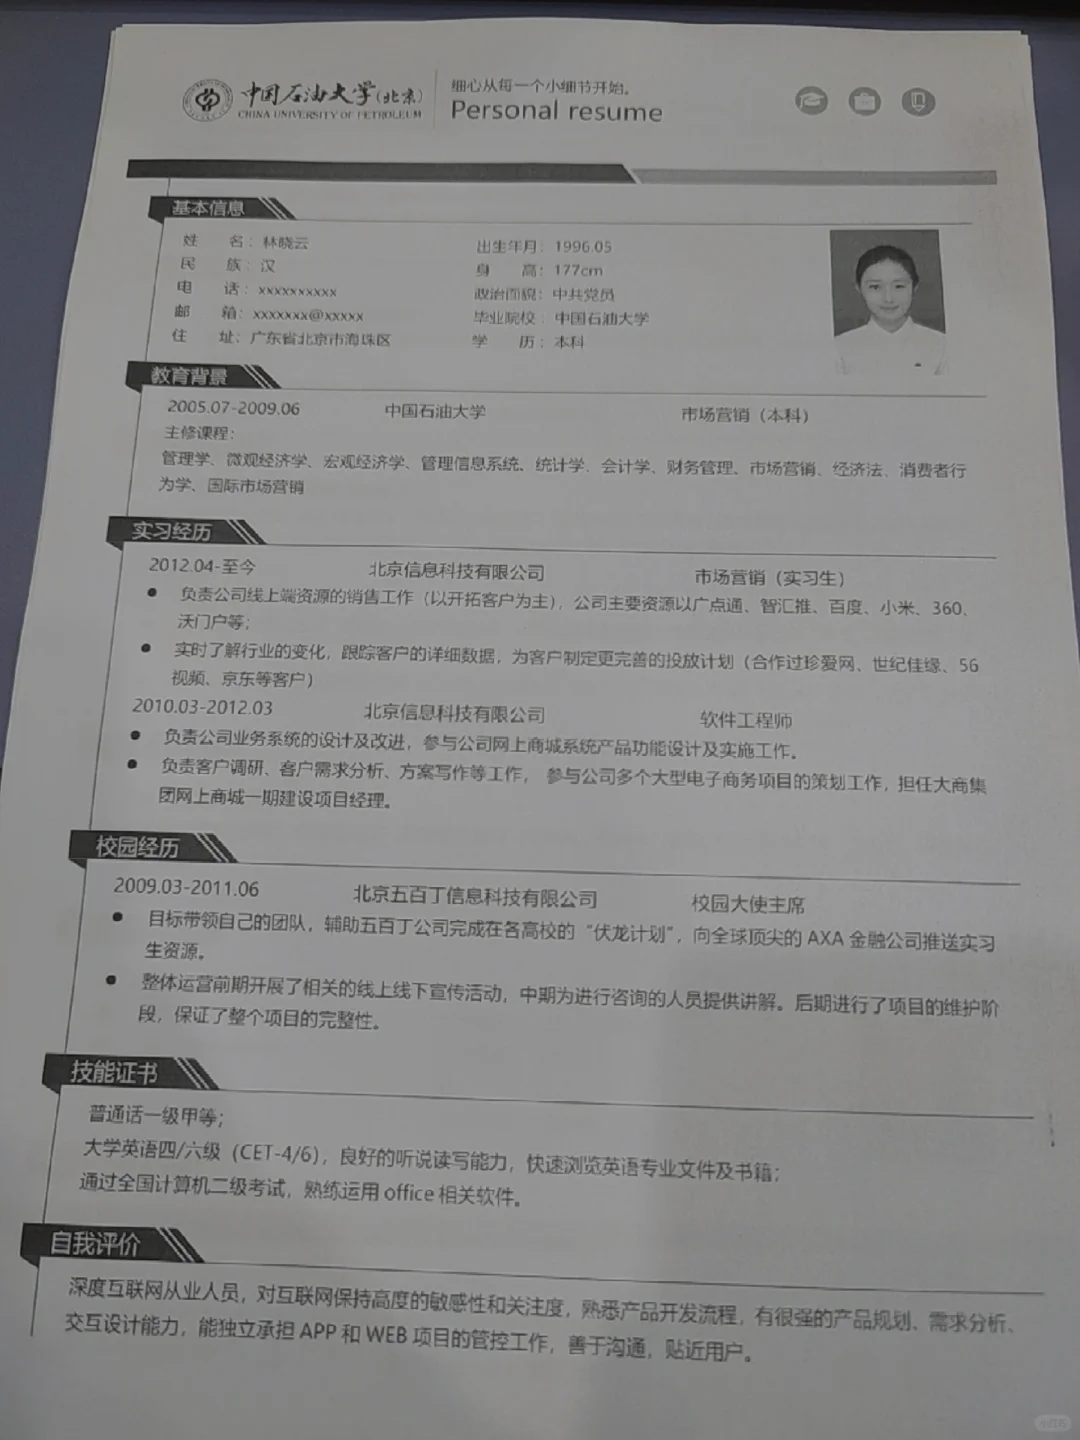 中国石油大学(北京)
CHINA UNIVERSITY OF PETROLEUM
细心从每一个小细节开始。
Personal resume
基本信息
姓 名：林晓云 出生年月：1996.05
民 族：汉 身 高：177cm
电 话：xxxxxxxxxx 政治面貌：中共党员
邮 箱：xxxxxxx@xxxxx 毕业院校：中国石油大学
住 址：广东省北京市海珠区 学 历：本科
教育背景
2005.07-2009.06 中国石油大学 市场营销（本科）
主修课程：
管理学、微观经济学、宏观经济学、管理信息系统、统计学、会计学、财务管理、市场营销、经济法、消费者行
为学、国际市场营销
实习经历
2012.04-至今 北京信息科技有限公司 市场营销（实习生）
● 负责公司线上端资源的销售工作（以开拓客户为主），公司主要资源以广点通、智汇推、百度、小米、360、
沃门户等；
● 实时了解行业的变化，跟踪客户的详细数据，为客户制定更完善的投放计划（合作过珍爱网、世纪佳缘、56
视频、京东等客户）
2010.03-2012.03 北京信息科技有限公司 软件工程师
● 负责公司业务系统的设计及改进，参与公司网上商城系统产品功能设计及实施工作。
● 负责客户调研、客户需求分析、方案写作等工作， 参与公司多个大型电子商务项目的策划工作，担任大商集
团网上商城一期建设项目经理。
校园经历
2009.03-2011.06 北京五百丁信息科技有限公司 校园大使主席
● 目标带领自己的团队，辅助五百丁公司完成在各高校的“伏龙计划”，向全球顶尖的 AXA 金融公司推送实习
生资源。
● 整体运营前期开展了相关的线上线下宣传活动，中期为进行咨询的人员提供讲解。后期进行了项目的维护阶
段，保证了整个项目的完整性。
技能证书
普通话一级甲等；
大学英语四/六级（CET-4/6），良好的听说读写能力，快速浏览英语专业文件及书籍；
通过全国计算机二级考试，熟练运用 office 相关软件。
自我评价
深度互联网从业人员，对互联网保持高度的敏感性和关注度，熟悉产品开发流程，有很强的产品规划、需求分析、
交互设计能力，能独立承担 APP 和 WEB 项目的管控工作，善于沟通，贴近用户。
小红书